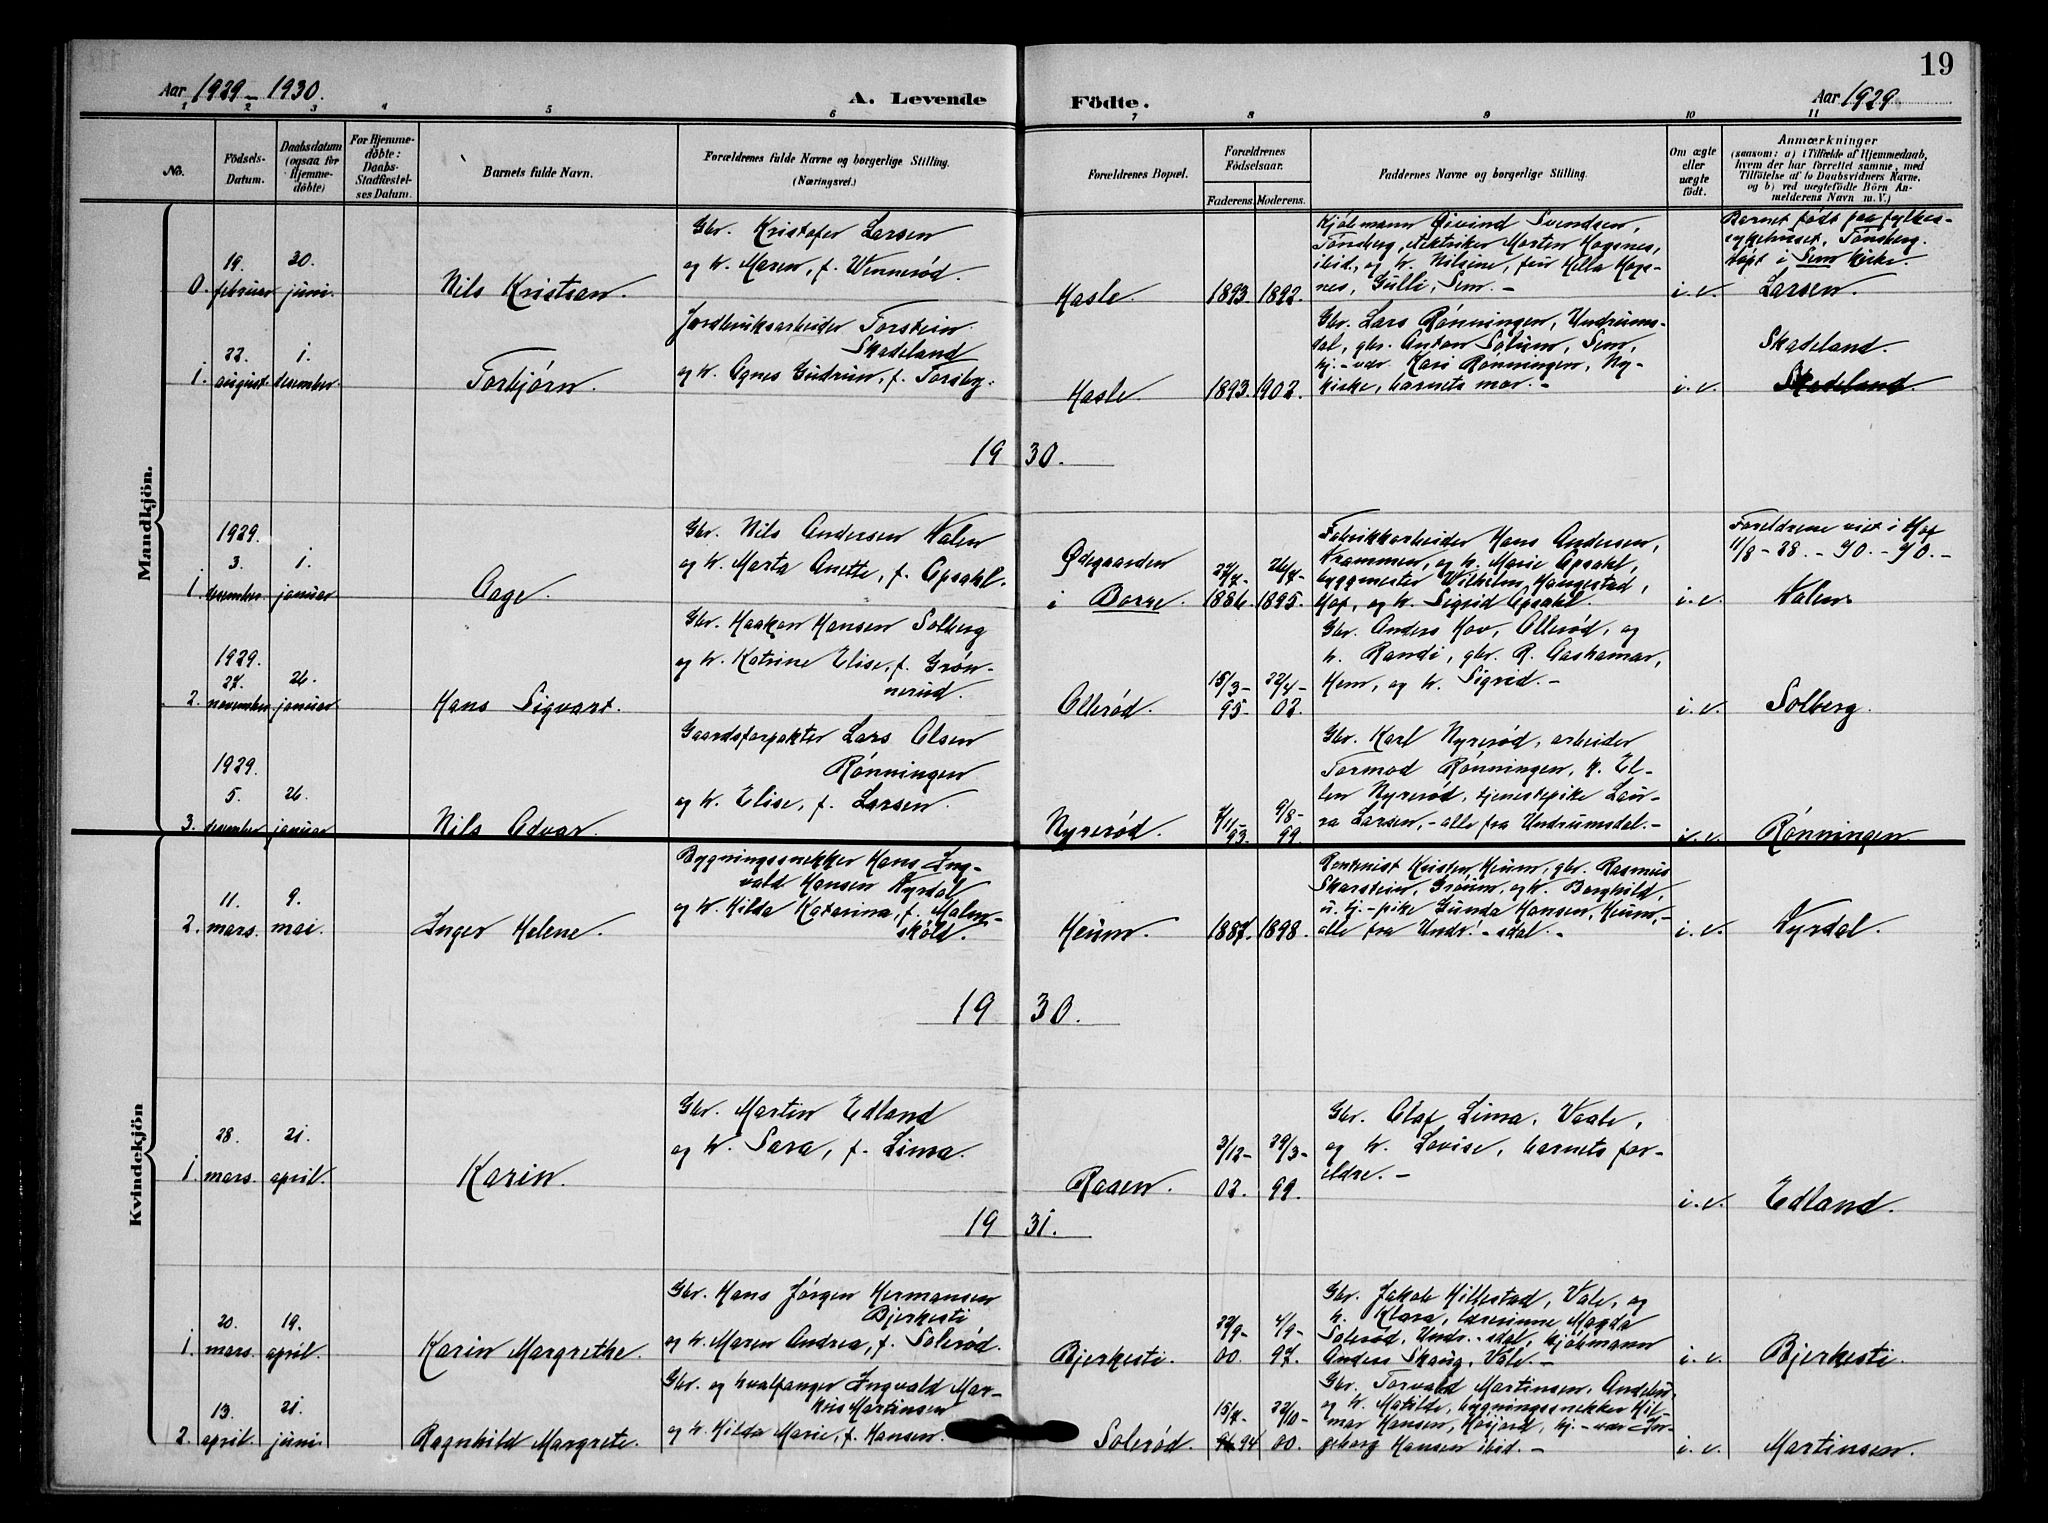 19
Aar 1929 - 1930.
A. Levende
Födte.
Aar 1929.
1 2 3 4 5 6 7 8 9 10 11
No.
Födsels-
Datum.
Daabsdatum
(ogsaa for
Hjemme-
döbte)
For Hjemme-
döbte:
Daabs-
Stadfæstel-
ses Datum.
Barnets fulde Navn.
Forældrenes fulde Navne og borgerlige Stilling.
(Næringsvei.)
Forældrenes Bopæl.
Forældrenes
Födselsaar.
Faderens. Moderens.
Faddernes Navne og borgerlige Stilling.
Om ægte
eller
uægte
födt.
Anmærkninger
(saasom: a) i Tilfælde af Hjemmedaab,
hvem der har forrettet samme, med
Tilföielse af to Daabsvidners Navne,
og b) ved uægtefödte Börn An-
melderens Navn m. V.)
Mandkjön.
0.
19.
februar
30.
juni.
Nils Kristian.
Gbr. Kristofer Larsen
og h. Maren, f. Wennerød.
Hasle.
1893.
1892.
Kjøbmann Øivind Svendsen,
Tønsberg, elektriker Martin Hogsnes,
ibid., og h. Nilsine, frü Hella Hogs-
nes, Gulli, Sem.-
i. e.
Barnet født paa fylkes-
sykehuset, Tønsberg.
døpt i Sem kirke.
Larsen.
1.
22.
august.
1.
desember.
Torbjørn.
Jordbruksarbeider Torstein
Skadeland
og h. Agnes Gudrun, f. Forsbg.
Hasle.
1893.
1902.
Gbr. Lars Rønningen, Undrums-
dal, gbr. Anton Solum, Sem,
hj.-vær. Kari Rønningen, Ny-
kirke, barnets mor.-
i. e.
Skadeland.
Skadeland
19 30.
1.
1929.
3.
desember.
1.
januar
Aage.
Gbr. Nils Andersen Valen
og h. Marta Anette, f. Opsahl.
Ødegaarden
i Borre.
27/7-
1886.
26/7-
1895.
Fabrikkarbeider Hans Andersen,
Drammen, og h. Marie Opsahl,
byggmester Wilhelm Haugestad,
Hof, og h. Sigrid Opsahl.
i. e.
Foreldrene viet i Hof
11/8 - 28. - 90. - 90. -
Valen.
2.
1929.
27.
november.
26.
januar
Hans Sigvart.
Gbr. Haakon Hansen Solberg
og h. Katrine Elise, f. Grøn-
nerud.
Ollerød.
15/3-
95.
22/4-
02.
Gbr. Anders Hov, Ollerød, og
h. Randi, gbr. R. Aashamar,
Hem, og h. Sigrid.-
i. e.
Solberg.
3.
1929.
5.
desember
26.
januar
Nils Edvar.
Gaardsforpakter Lars Olsen
Rønningen
og h. Elise, f. Larsen.
Nyrerød.
7/11-
93.
9/8-
99.
Gbr. Karl Nyrerød, arbeider
Tormod Rønningen, h. El-
len Nyrerød, tjenestepike Lau-
ra Larsen,- alle fra Undrumsdal.-
i. e.
Rønningen
Kvindekjön
2.
11.
mars.
9.
mai.
Inger Helene.
Bygningssnekker Hans Ing-
vald Hansen Nyrdal
og h. Hilda Katarina, f. Malm-
skøld.
Heum.
1887.
1898.
Rentenist Kristen Heum, gbr. Rasmus
Skarstein, Grøum, og h. Borghild,
u. hj.-pike Gunda Hansen, Heum,-
alle fra Undr.-sdal.-
i. e.
Nyrdal.
19 30.
1.
28.
mars.
21.
april.
Karin.
Gbr. Martin Edland
og h. Sara, f. Lima.
Raaen.
3/12-
02.
29/3-
99.
Gbr. Olaf Lima, Vaale,
og h. Lovise, barnets for-
eldre.-
i. e.
Edland.
19 31.
1.
20.
mars.
19.
april.
Karin Margrethe.
Gbr. Hans Jørgen Hermansen
Bjerkesti
og h. Maren Andrea, f. Solerød.
Bjerkesti.
22/9-
00.
4/9-
97.
Gbr. Jakob Hillestad, Vale, og
h. Klara, lærerinne Magda
Solerød, Undr.-sdal, kjøbmann
Anders Skaug, Vale.-
i. e.
Bjerkesti.
2.
13.
april.
21.
juni.
Ragnhild Margrete.
Gbr. og hvalfanger Ingvald Mar-
Martinsen
og h. Hilda Marie, f. Hansen.
Solerød.
15/7-
94
22/10-
00.
Gbr. Torvald Martinsen, Andebu,
og h. Matilde, bygningssnekker Hil-
mar Hansen, hj.-vær. In-
geborg Hansen ibid.-
i. e.
Martinsen.